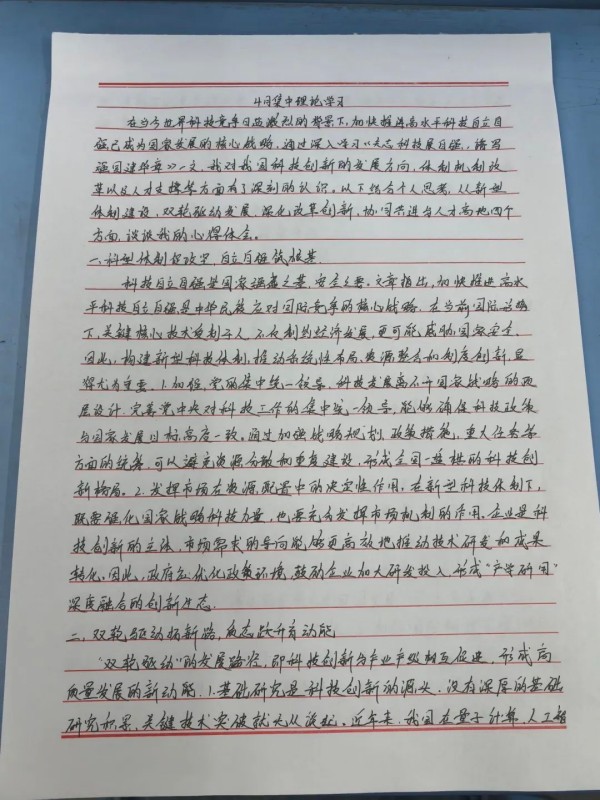 4月集中理论学习
在当今世界科技竞争日益激烈的背景下,加快推进高水平科技自立自
强已成为国家发展的核心战略,通过深入学习《矢志科技自立自强,谱写
强国建设华章》一文,我对我国科技创新的发展方向、体制机制改
革以及人才支撑等方面有了深刻的认识。以下结合个人思考,从新型
体制建设,双轮驱动发展,深化改革创新,协同共进与人才高地四个
方面,谈谈我的心得体会。
一、新型体制促攻坚,自立自强筑根基
科技自立自强是国家强盛之基,安全之要。文章指出,加快推进高水
平科技自立自强是中华民族应对国际竞争的核心战略,在当前国际形势
下,关键核心技术受制于人不仅制约经济发展,更可能威胁国家安全。
因此,构建新型科技体制,推动系统性布局,资源整合和制度创新,显
得尤为重要。1.加强党的集中统一领导,科技发展离不开国家战略的顶
层设计,完善党中央对科技工作的集中统一领导,能够确保科技政策
与国家发展目标高度一致,通过加强战略规划,政策措施,重大任务等
方面的统筹,可以避免资源分散和重复建设,形成全国一盘棋的科技创
新格局。2.发挥市场在资源配置中的决定性作用。在新型科技体制下,
既要强化国家战略科技力量,也要充分发挥市场机制的作用。企业是科
技创新的主体,市场需求的导向能够更高效地推动技术研发和成果
转化。因此,政府应优化政策环境,鼓励企业加大研发投入,形成“产学研用”
深度融合的创新生态。
二、双轮驱动拓新路,
“双轮驱动”的发展路径,即科技创新与产业产业相互促进,形成高
质量发展的新动能,1.基础研究是科技创新的源头,没有深厚的基础
研究积累,关键技术突破就无从谈起。近年来,我国在量子计算,人工智